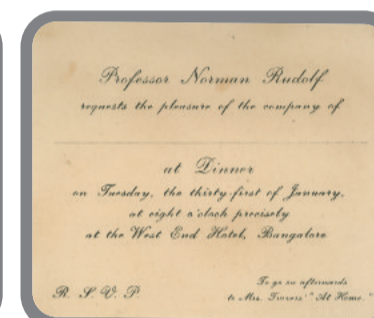 Professor Norman Rudolf
requests the pleasure of the company of
at Dinner
on Tuesday, the thirty-first of January,
at eight o'clock precisely
at the West End Hotel, Bangalore
R. S. V. P.
To go on afterwards
to Mrs. "At Home."